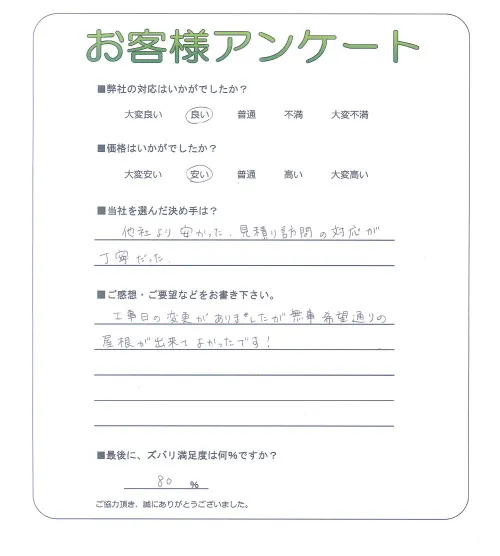 お客様アンケート
■弊社の対応はいかがでしたか？
大変良い 良い 普通 不満 大変不満
■価格はいかがでしたか？
大変安い 安い 普通 高い 大変高い
■当社を選んだ決め手は？
他社より安かった．見積り訪問の対応が
丁寧だった．
■ご感想・ご要望などをお書き下さい。
工事日の変更がありましたが無事希望通りの
屋根が出来てよかったです！
■最後に、ズバリ満足度は何％ですか？
80 ％
ご協力頂き、誠にありがとうございました。